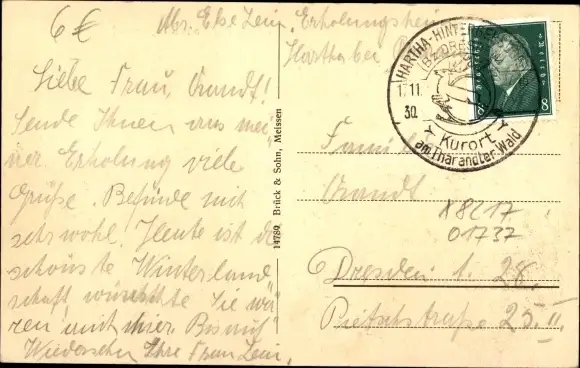 6 €
Abs. Else Zein, Erholungsheim
Hartha bei
Liebe Frau Brandt!
Sende Ihnen aus mei
ner Erholung viele
Grüße. Befinde mich
sehr wohl. Heute ist die
schönste Winterland
schaft wünschte Sie wä
ren mit hier Bis auf
Wiedersehen Ihre Frau Zein.
14780 Brück & Sohn, Meissen
HARTHA-HINTERGERSDORF
(BZ. DRESDEN)
1.11.
30.
Kurort
am Tharandter Wald
DEUTSCHES REICH
8 8
Frau
Brandt
X8217
01737
Dresden A. 28.
Pietschstraße 25. II.